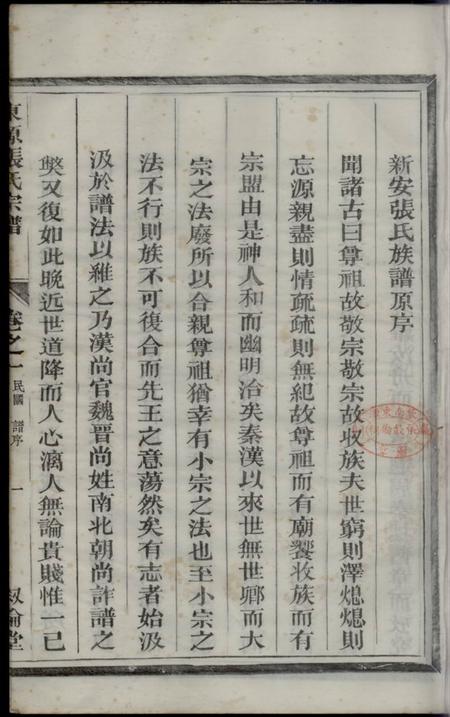 新安張氏族譜原序
聞諸古曰尊祖故敬宗敬宗故收族夫世窮則澤熄熄則
忘源親盡則情疏疏則無紀故尊祖而有廟饗收族而有
宗盟由是神人和而幽明治矣秦漢以來世無世卿而大
宗之法廢所以合親尊祖猶幸有小宗之法也至小宗之
法不行則族不可復合而先王之意蕩然矣有志者始汲
汲於譜法以維之乃漢尚官魏晉尚姓南北朝尚詐譜之
獘又復如此晚近世道降而人心漓人無論貴賤惟一已
東源張氏宗譜 卷之一 民國 譜序 一 敘倫堂